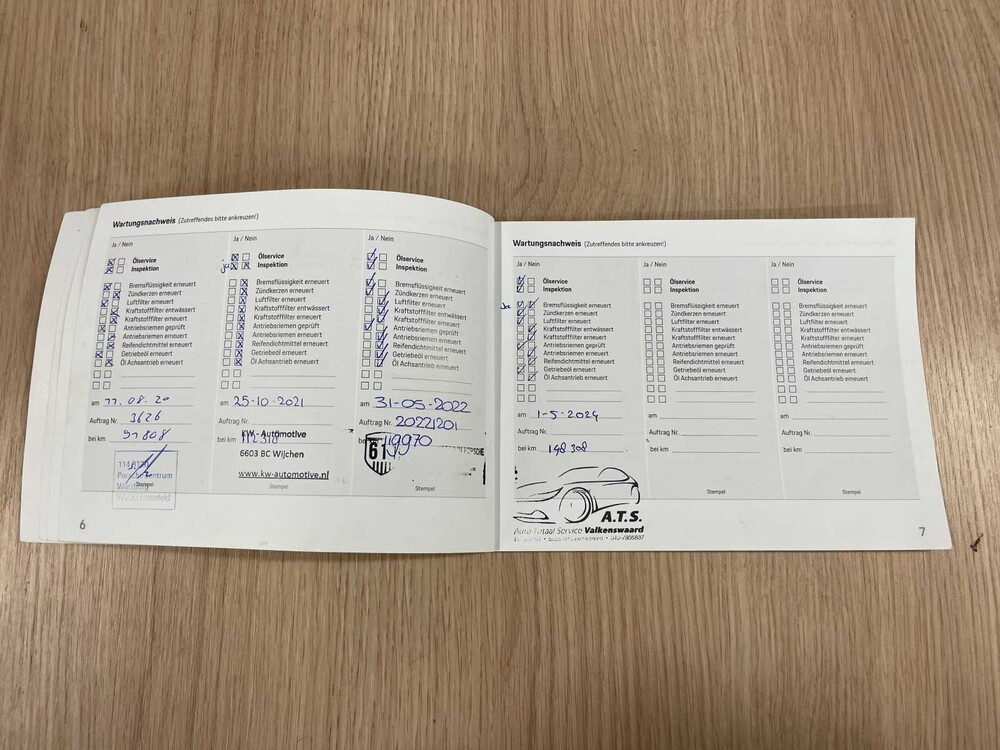 Wartungsnachweis (Zutreffendes bitte ankreuzen!)
Ja / Nein
Ölservice
Inspektion
Bremsflüssigkeit erneuert
Zündkerzen erneuert
Luftfilter erneuert
Kraftstofffilter entwässert
Kraftstofffilter erneuert
Antriebsriemen geprüft
Antriebsriemen erneuert
Reifendichtmittel erneuert
Getriebeöl erneuert
Öl Achsantrieb erneuert
am 11.08.20
Auftrag Nr. 3626
bei km 91808
Porsche Zentrum
Stempel
6
Ja / Nein
Ölservice
ja Inspektion
Bremsflüssigkeit erneuert
Zündkerzen erneuert
Luftfilter erneuert
Kraftstofffilter entwässert
Kraftstofffilter erneuert
Antriebsriemen geprüft
Antriebsriemen erneuert
Reifendichtmittel erneuert
Getriebeöl erneuert
Öl Achsantrieb erneuert
am 25-10-2021
Auftrag Nr.
KW - Automotive
bei km 112318
6603 BC Wijchen
www.kw-automotive.nl
Stempel
Ja / Nein
Ölservice
Inspektion
Bremsflüssigkeit erneuert
Zündkerzen erneuert
Luftfilter erneuert
Kraftstofffilter entwässert
Kraftstofffilter erneuert
Antriebsriemen geprüft
Antriebsriemen erneuert
Reifendichtmittel erneuert
Getriebeöl erneuert
Öl Achsantrieb erneuert
am 31-05-2022
Auftrag Nr. 20221201
119970
61
PORSCHE
Stempel
Wartungsnachweis (Zutreffendes bitte ankreuzen!)
Ja / Nein
Ölservice
Inspektion
Ja Bremsflüssigkeit erneuert
Zündkerzen erneuert
Luftfilter erneuert
Kraftstofffilter entwässert
Kraftstofffilter erneuert
Antriebsriemen geprüft
Antriebsriemen erneuert
Reifendichtmittel erneuert
Getriebeöl erneuert
Öl Achsantrieb erneuert
am 1-5-2024
Auftrag Nr.
bei km 148308
A.T.S.
Auto Totaal Service Valkenswaard
040-7805837
Ja / Nein
Ölservice
Inspektion
Bremsflüssigkeit erneuert
Zündkerzen erneuert
Luftfilter erneuert
Kraftstofffilter entwässert
Kraftstofffilter erneuert
Antriebsriemen geprüft
Antriebsriemen erneuert
Reifendichtmittel erneuert
Getriebeöl erneuert
Öl Achsantrieb erneuert
am
Auftrag Nr.
bei km
Stempel
Ja / Nein
Ölservice
Inspektion
Bremsflüssigkeit erneuert
Zündkerzen erneuert
Luftfilter erneuert
Kraftstofffilter entwässert
Kraftstofffilter erneuert
Antriebsriemen geprüft
Antriebsriemen erneuert
Reifendichtmittel erneuert
Getriebeöl erneuert
Öl Achsantrieb erneuert
am
Auftrag Nr.
bei km
Stempel
7